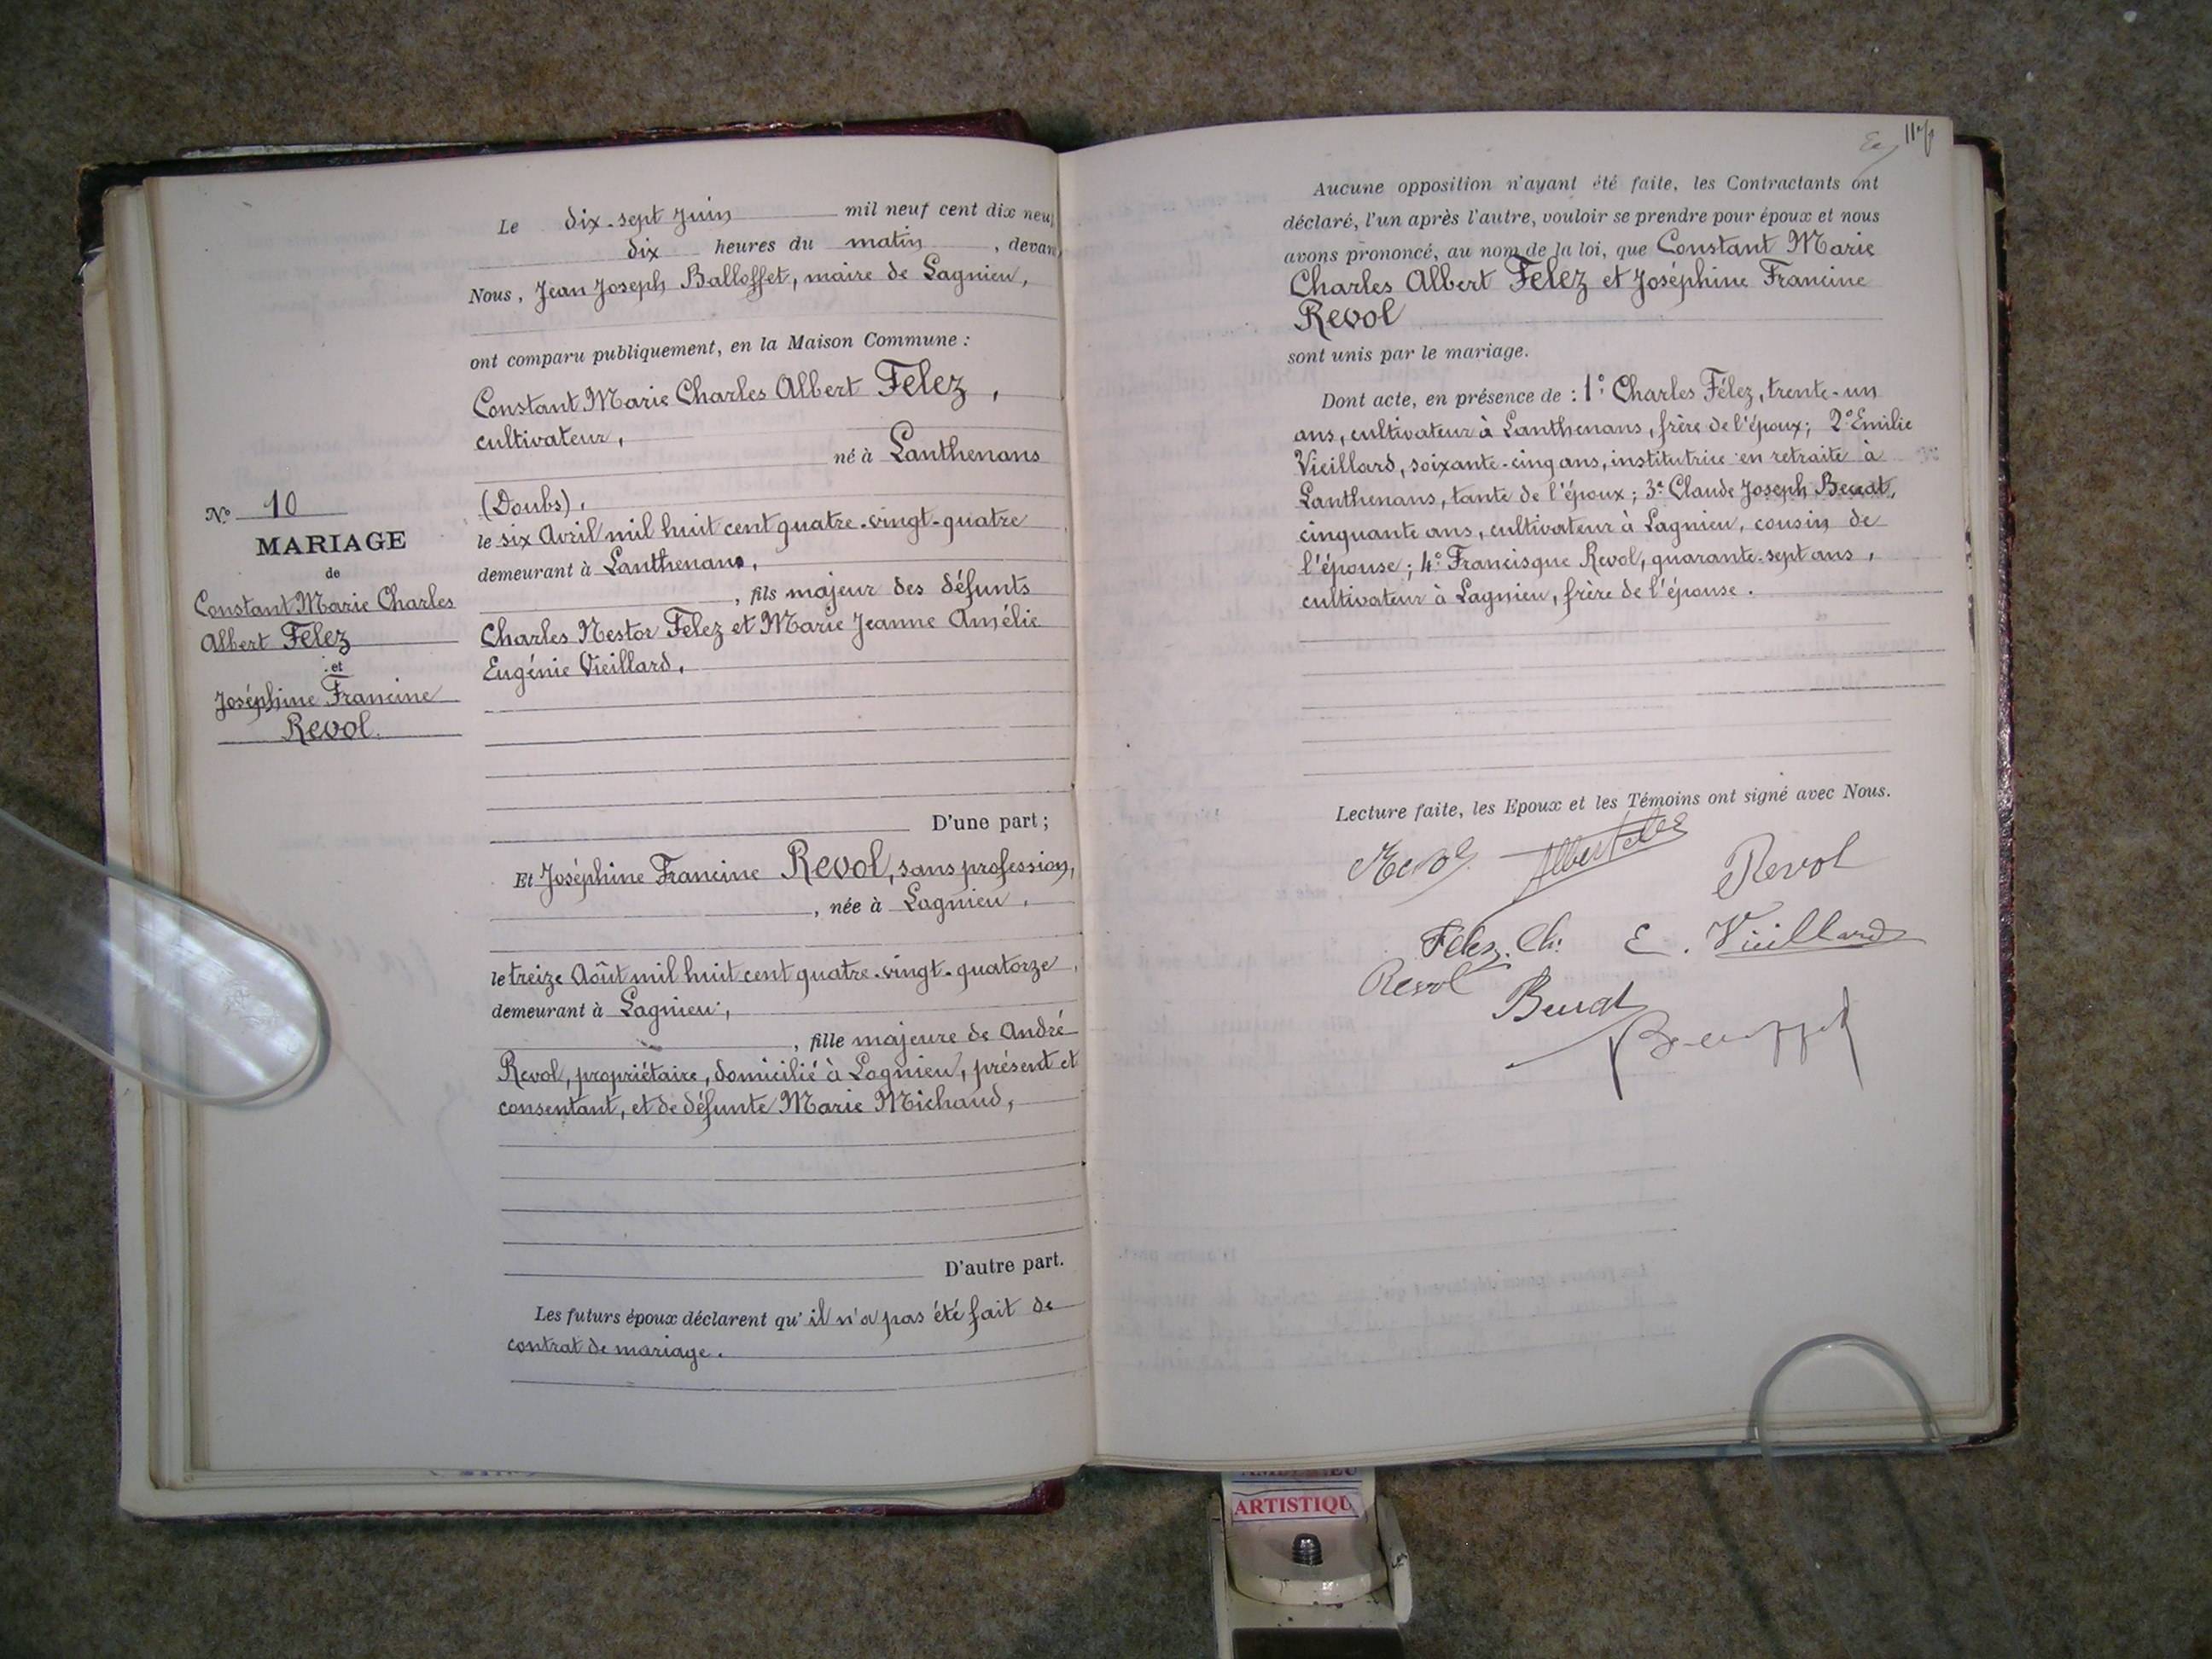 Le dix-sept Juin mil neuf cent dix neuf
dix heures du matin, devan
Nous, Jean Joseph Balloffet, maire de Lagnieu,
ont comparu publiquement, en la Maison Commune :
Constant Marie Charles Albert Felez,
cultivateur,
né à Lanthenans
(Doubs),
le six Avril mil huit cent quatre-vingt-quatre
demeurant à Lanthenans,
, fils majeur des défunts
Charles Nestor Felez et Marie Jeanne Amélie
Eugénie Vieillard,
D'une part ;
Et Joséphine Francine Revol, sans profession,
, née à Lagnieu,
le treize Août mil huit cent quatre-vingt-quatorze,
demeurant à Lagnieu,
, fille majeure de André
Revol, propriétaire, domicilié à Lagnieu, présent et
consentant, et de défunte Marie Michaud,
D'autre part.
Les futurs époux déclarent qu'il n'a pas été fait de
contrat de mariage.
N° 10
MARIAGE
de
Constant Marie Charles
Albert Felez
et
Joséphine Francine
Revol.
Aucune opposition n'ayant été faite, les Contractants ont
déclaré, l'un après l'autre, vouloir se prendre pour époux et nous
avons prononcé, au nom de la loi, que Constant Marie
Charles Albert Felez et Joséphine Francine
Revol
sont unis par le mariage.
Dont acte, en présence de : 1° Charles Félez, trente-un
ans, cultivateur à Lanthenans, frère de l'époux ; 2° Emilie
Vieillard, soixante-cinq ans, institutrice en retraite à
Lanthenans, tante de l'époux ; 3° Claude Joseph
cinquante ans, cultivateur à Lagnieu, cousin de
l'épouse ; 4° Francisque Revol, quarante-sept ans,
cultivateur à Lagnieu, frère de l'épouse.
Lecture faite, les Epoux et les Témoins ont signé avec Nous.
Revol Albert Felez Revol
Felez. Ch. E. Vieillard
Revol
ARTISTIQU